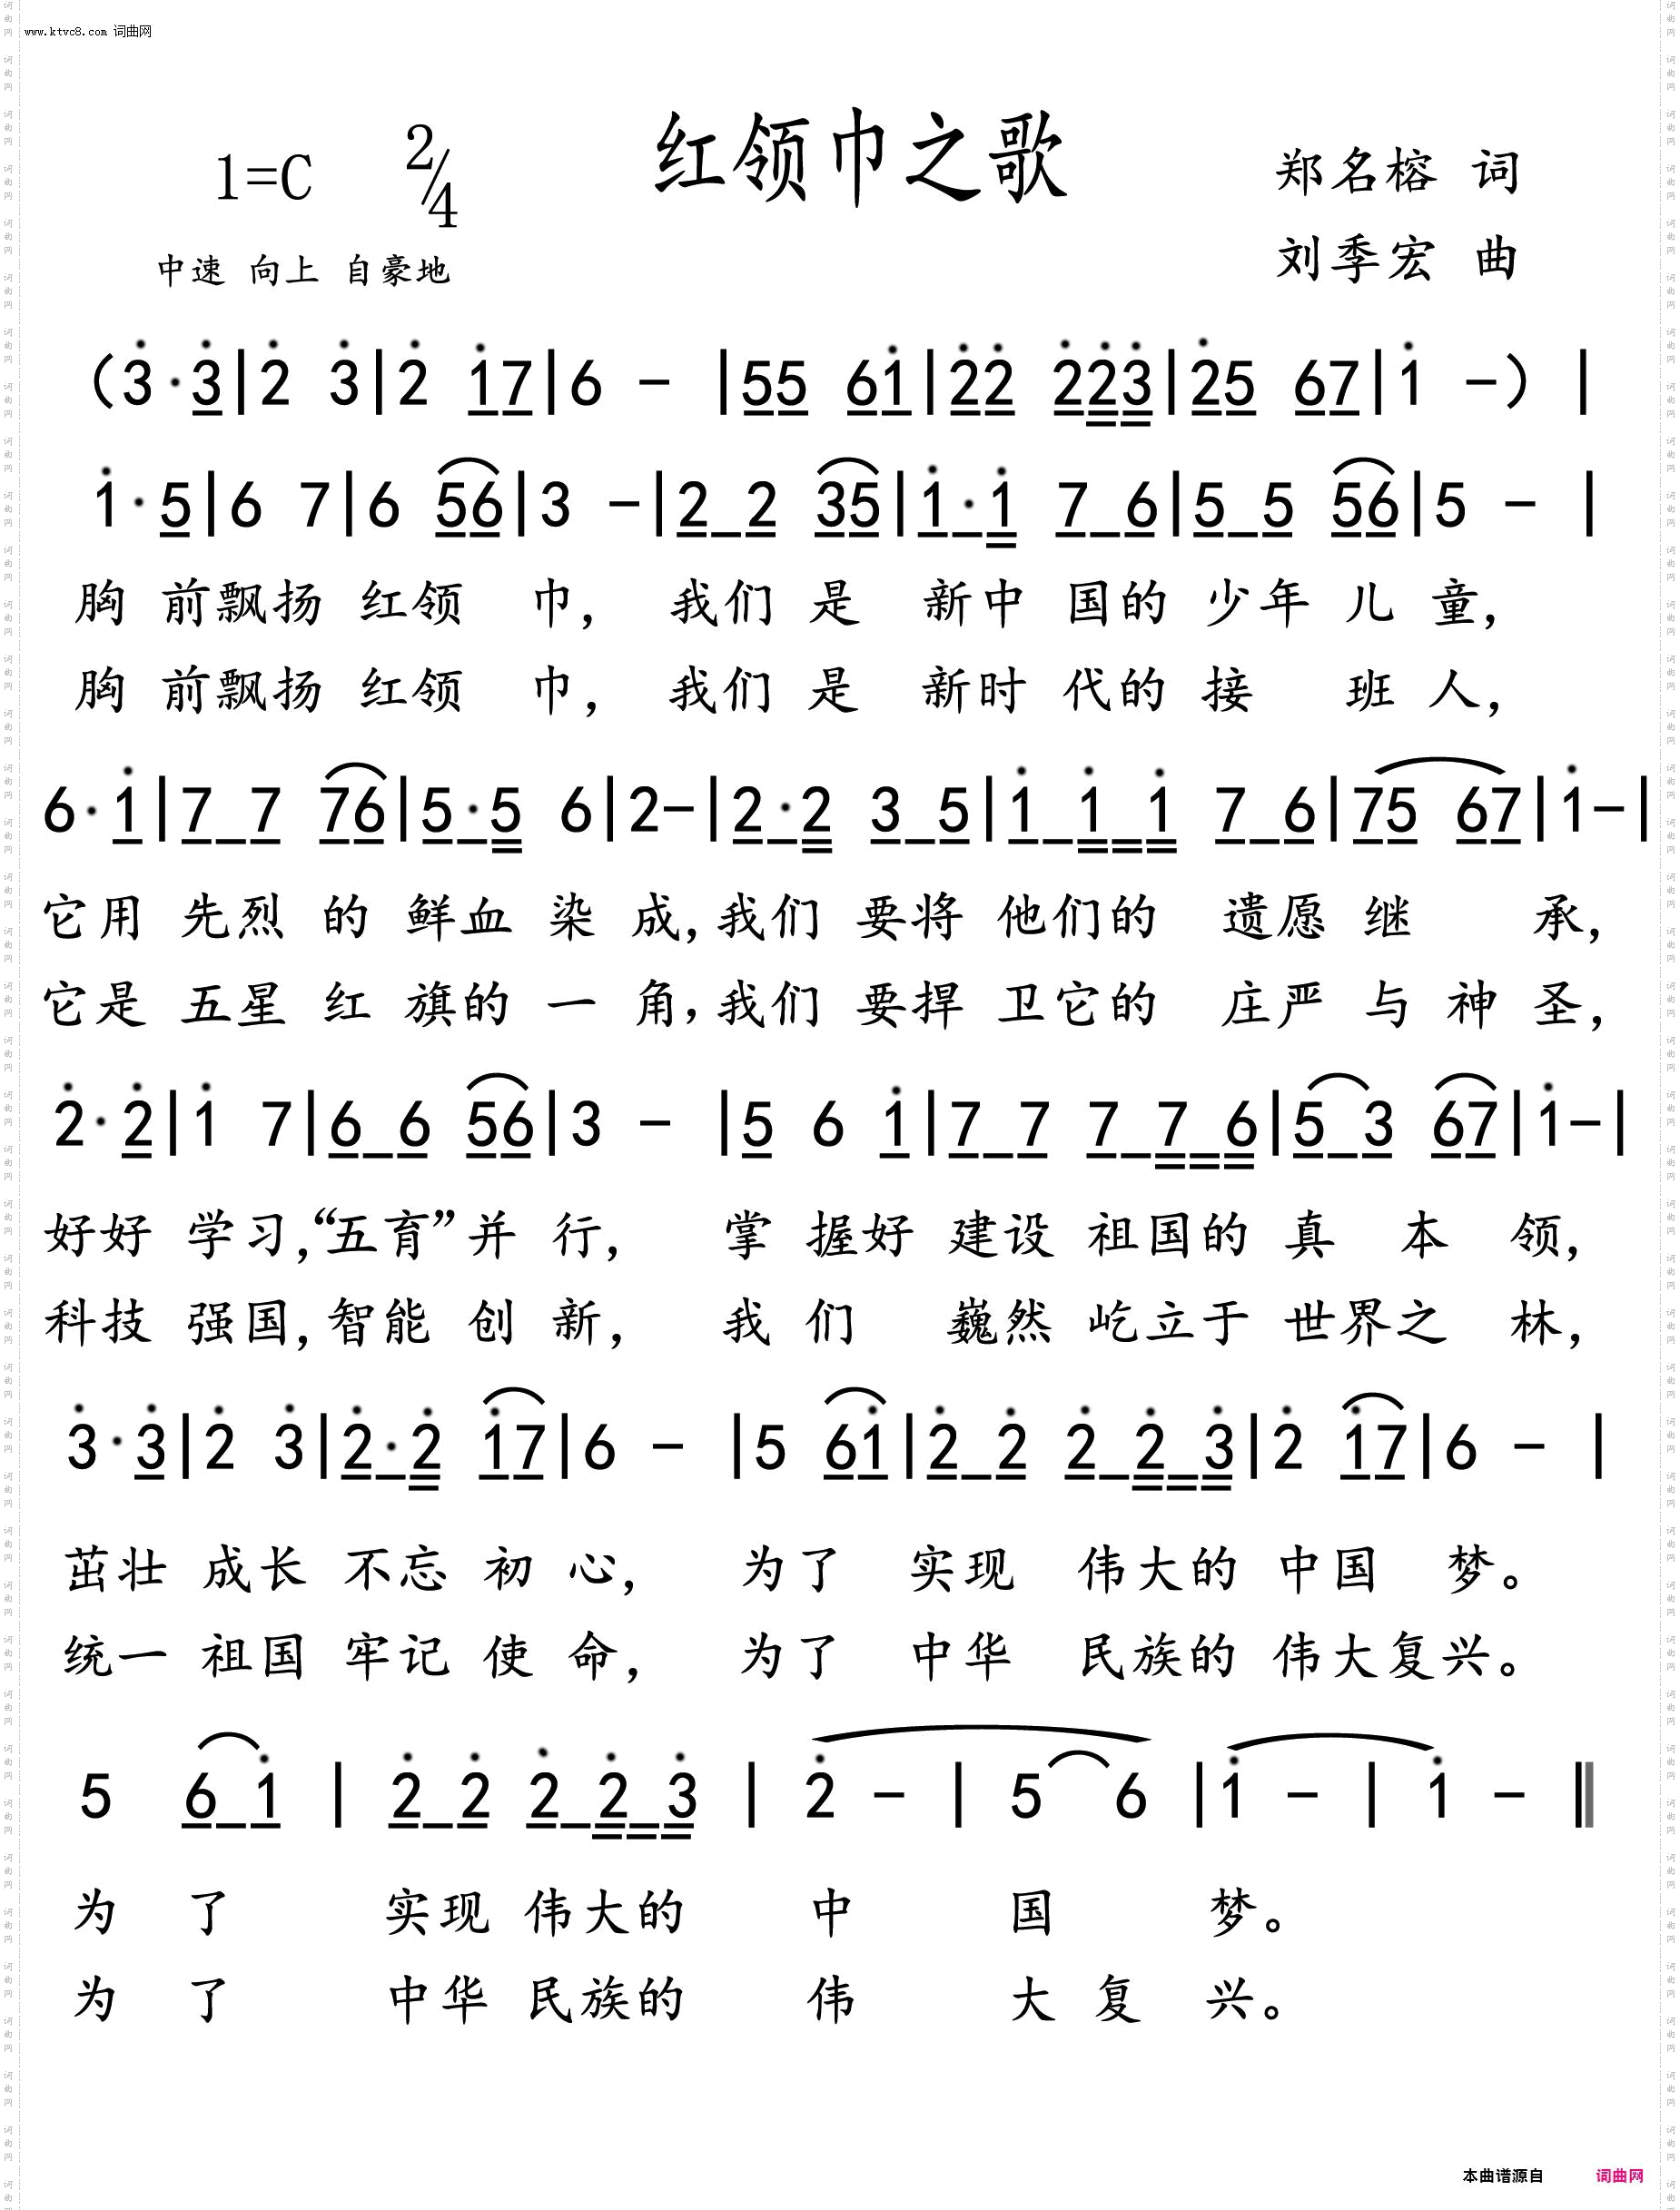 www.ktvc8.com 词曲网
红领巾之歌
1=C 2/4
郑名榕 词
中速 向上 自豪地
刘季宏 曲
(3̇·3̇|2̇ 3̇|2̇ 1̇7|6 -|55 61̇|2̇2̇ 2̇2̇3̇|2̇5 67|1̇ -)|
1̇·5|6 7|6 56|3 -|2 2 35|1̇·1̇ 7 6|5 5 56|5 -|
胸 前飘扬 红领 巾, 我们 是 新中 国的 少年 儿 童,
胸 前飘扬 红领 巾, 我们 是 新时 代的 接 班 人,
6·1̇|7 7 76|5·5 6|2-|2·2 3 5|1̇ 1̇ 1̇ 7 6|75 67|1̇-|
它用 先烈 的 鲜血 染 成,我们 要将 他们的 遗愿 继 承,
它是 五星 红 旗的 一 角,我们 要捍 卫它的 庄严 与 神 圣,
2̇·2̇|1̇ 7|6 6 56|3 -|5 6 1̇|7 7 7 7 6|5 3 67|1̇-|
好好 学习,“五育”并 行, 掌 握好 建设 祖国的 真 本 领,
科技 强国,智能 创 新, 我 们 巍然 屹立于 世界之 林,
3̇·3̇|2̇ 3̇|2̇·2̇ 1̇7|6 -|5 61̇|2̇ 2̇ 2̇ 2̇ 3̇|2̇ 1̇7|6 -|
茁壮 成长 不忘 初 心, 为了 实现 伟大的 中国 梦。
统一 祖国 牢记 使 命, 为了 中华 民族的 伟大复兴。
5 6 1̇|2̇ 2̇ 2̇ 2̇ 3̇|2̇ -|5 6|1̇ -|1̇ -‖
为 了 实现 伟大的 中 国 梦。
为 了 中华 民族的 伟 大 复 兴。
本曲谱源自 词曲网